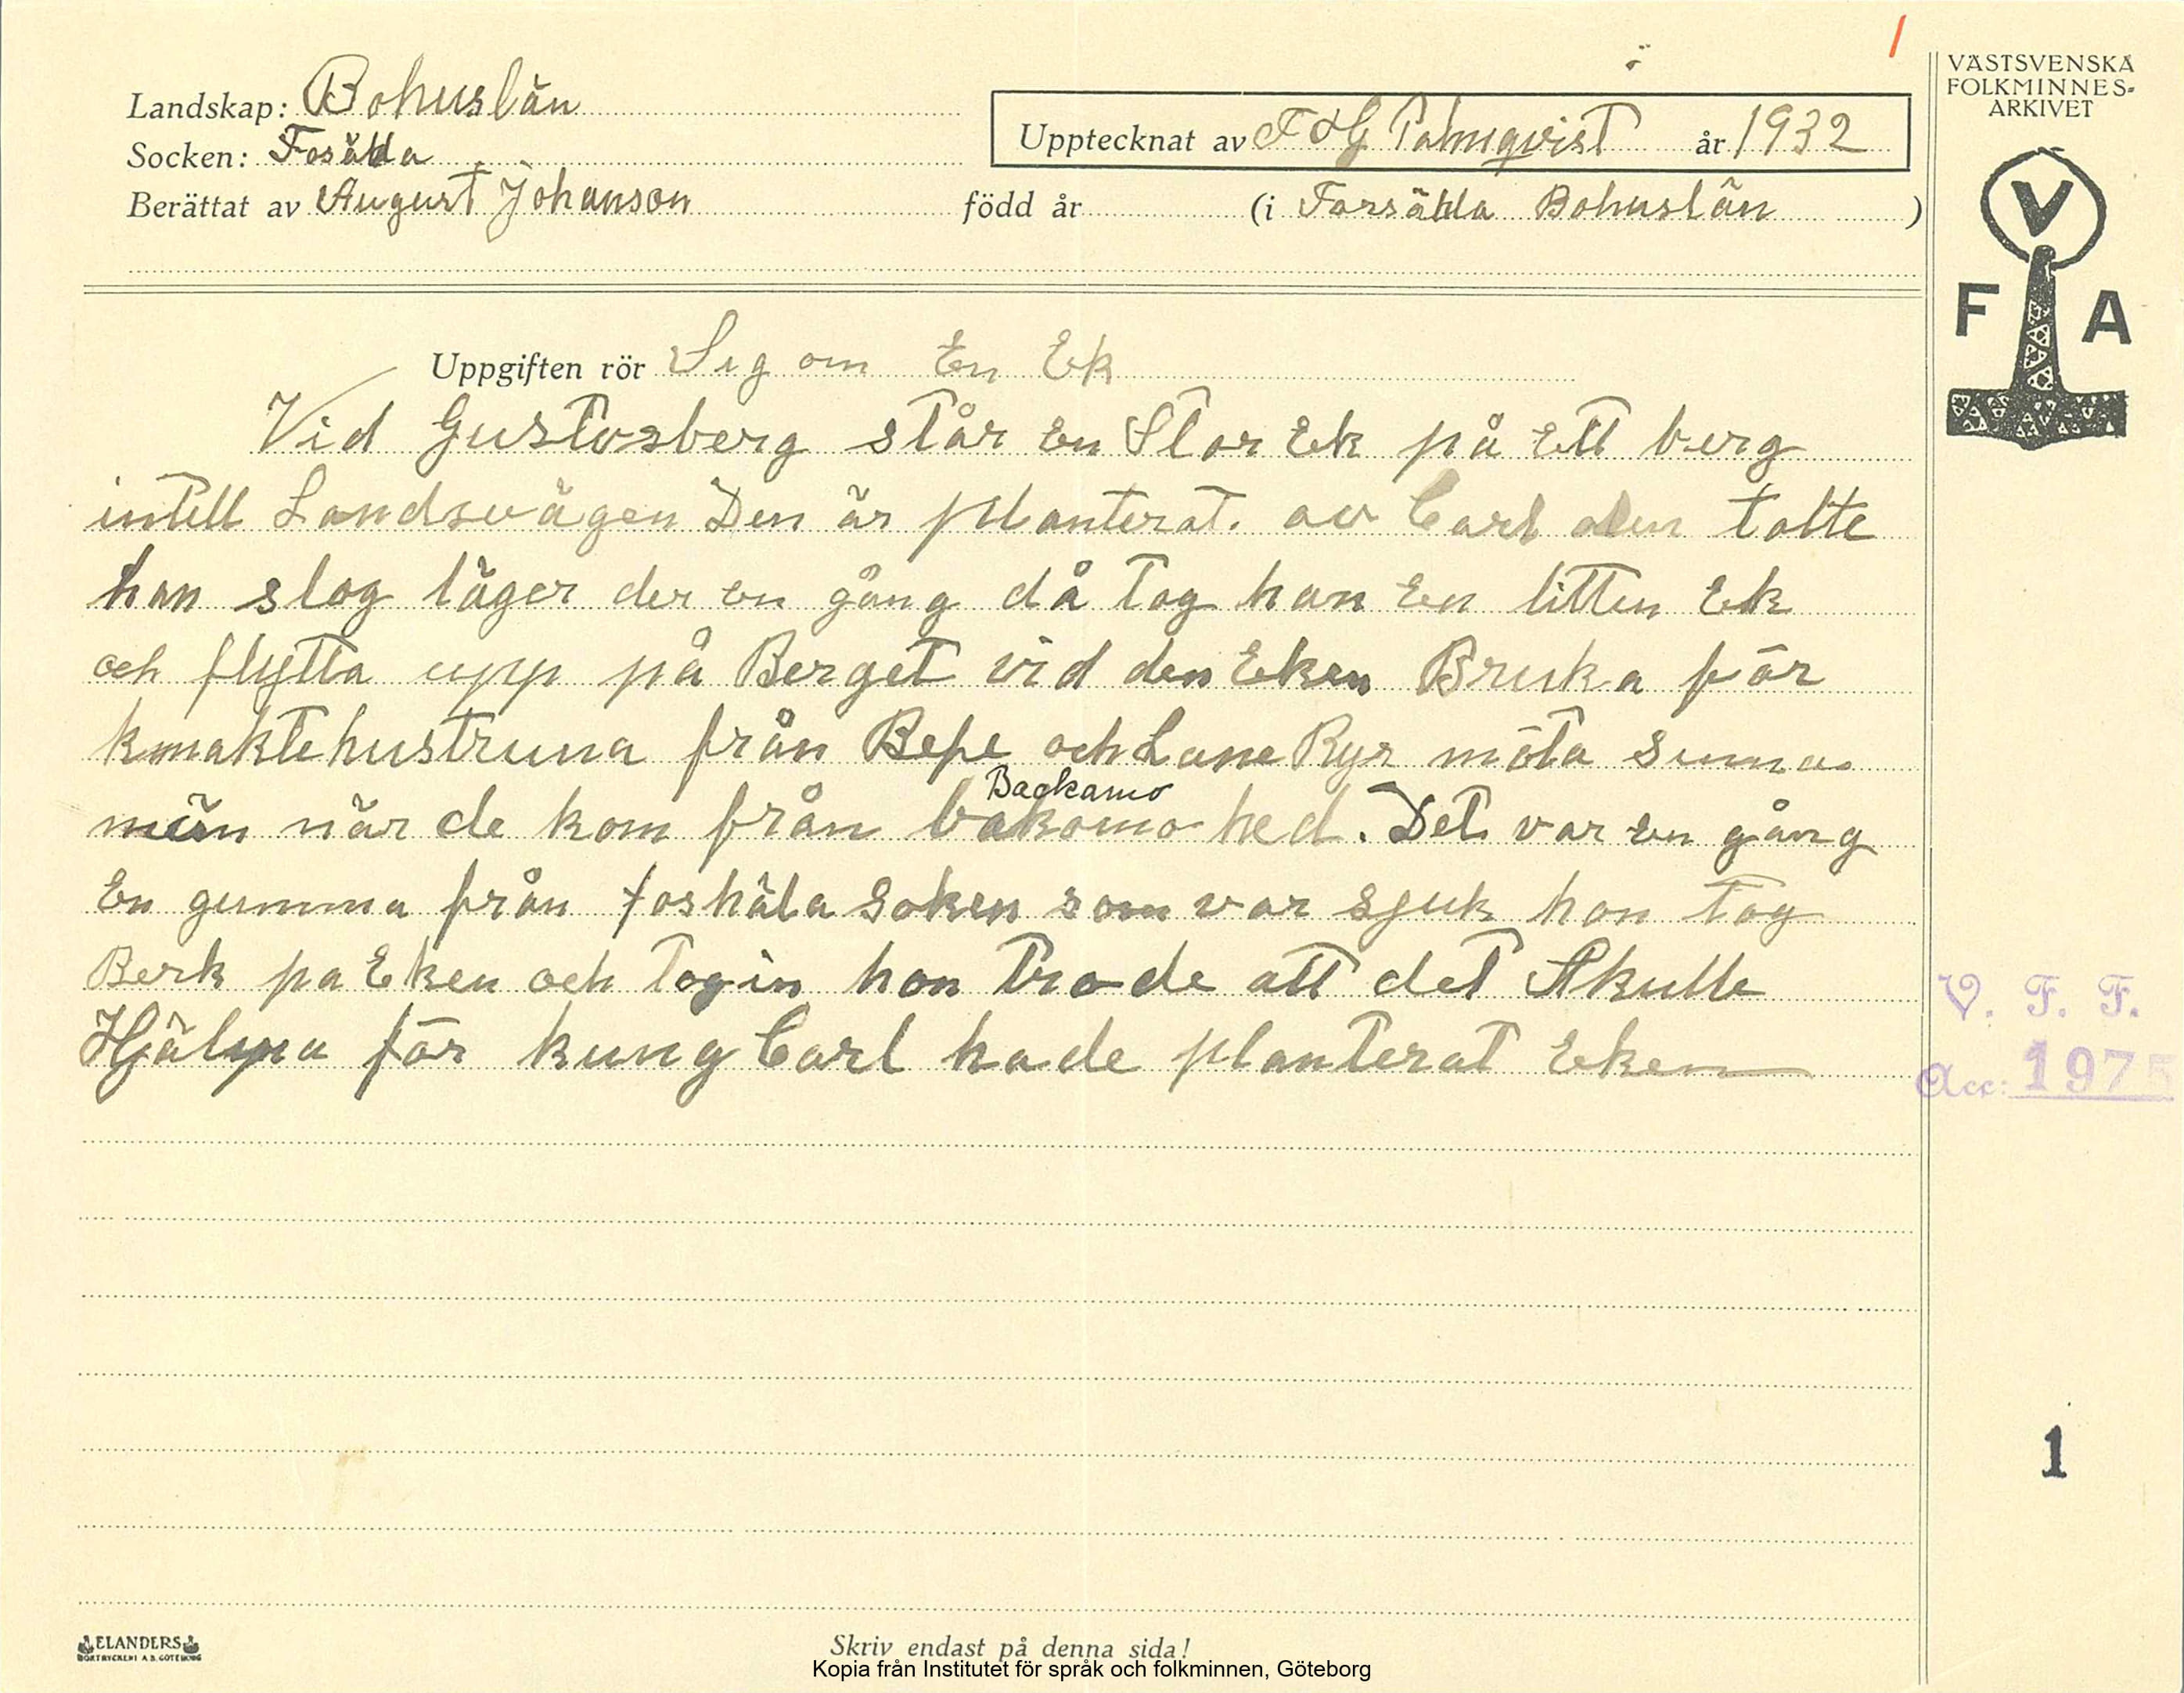 VÄSTSVENSKA
FOLKMINNES-
ARKIVET
Landskap: Bohuslän
Socken: Fosäkla
Upptecknat av F HG Palmqvist år 1932
Berättat av August Johanson född år (i Farsäkla Bohuslän )
V
F A
Uppgiften rör Seg om En Ek
Vid Gustvsberg står en Stor Ek på Ett berg
intell Landsvägen Den är planterat. av Carl den tolte
han slog läger der en gång då tog han En litten Ek
och flytta upp på Berget vid den Eken Bruka för
knaktehustruna från Befe och Lane Ryr möta sinna
män när de kom från bakamo hed. Det var en gång
Backamo
En gumma från foshäla Soken som var sjuk hon tog
Berk pa Eken och tog in hon trode att det Skulle
Hjälpa för kung Carl hade planterat Eken
V. F. F.
Acc: 1975
1
ELANDERS
BOKTRYCKERI A.B. GÖTEBORG
Skriv endast på denna sida!
Kopia från Institutet för språk och folkminnen, Göteborg